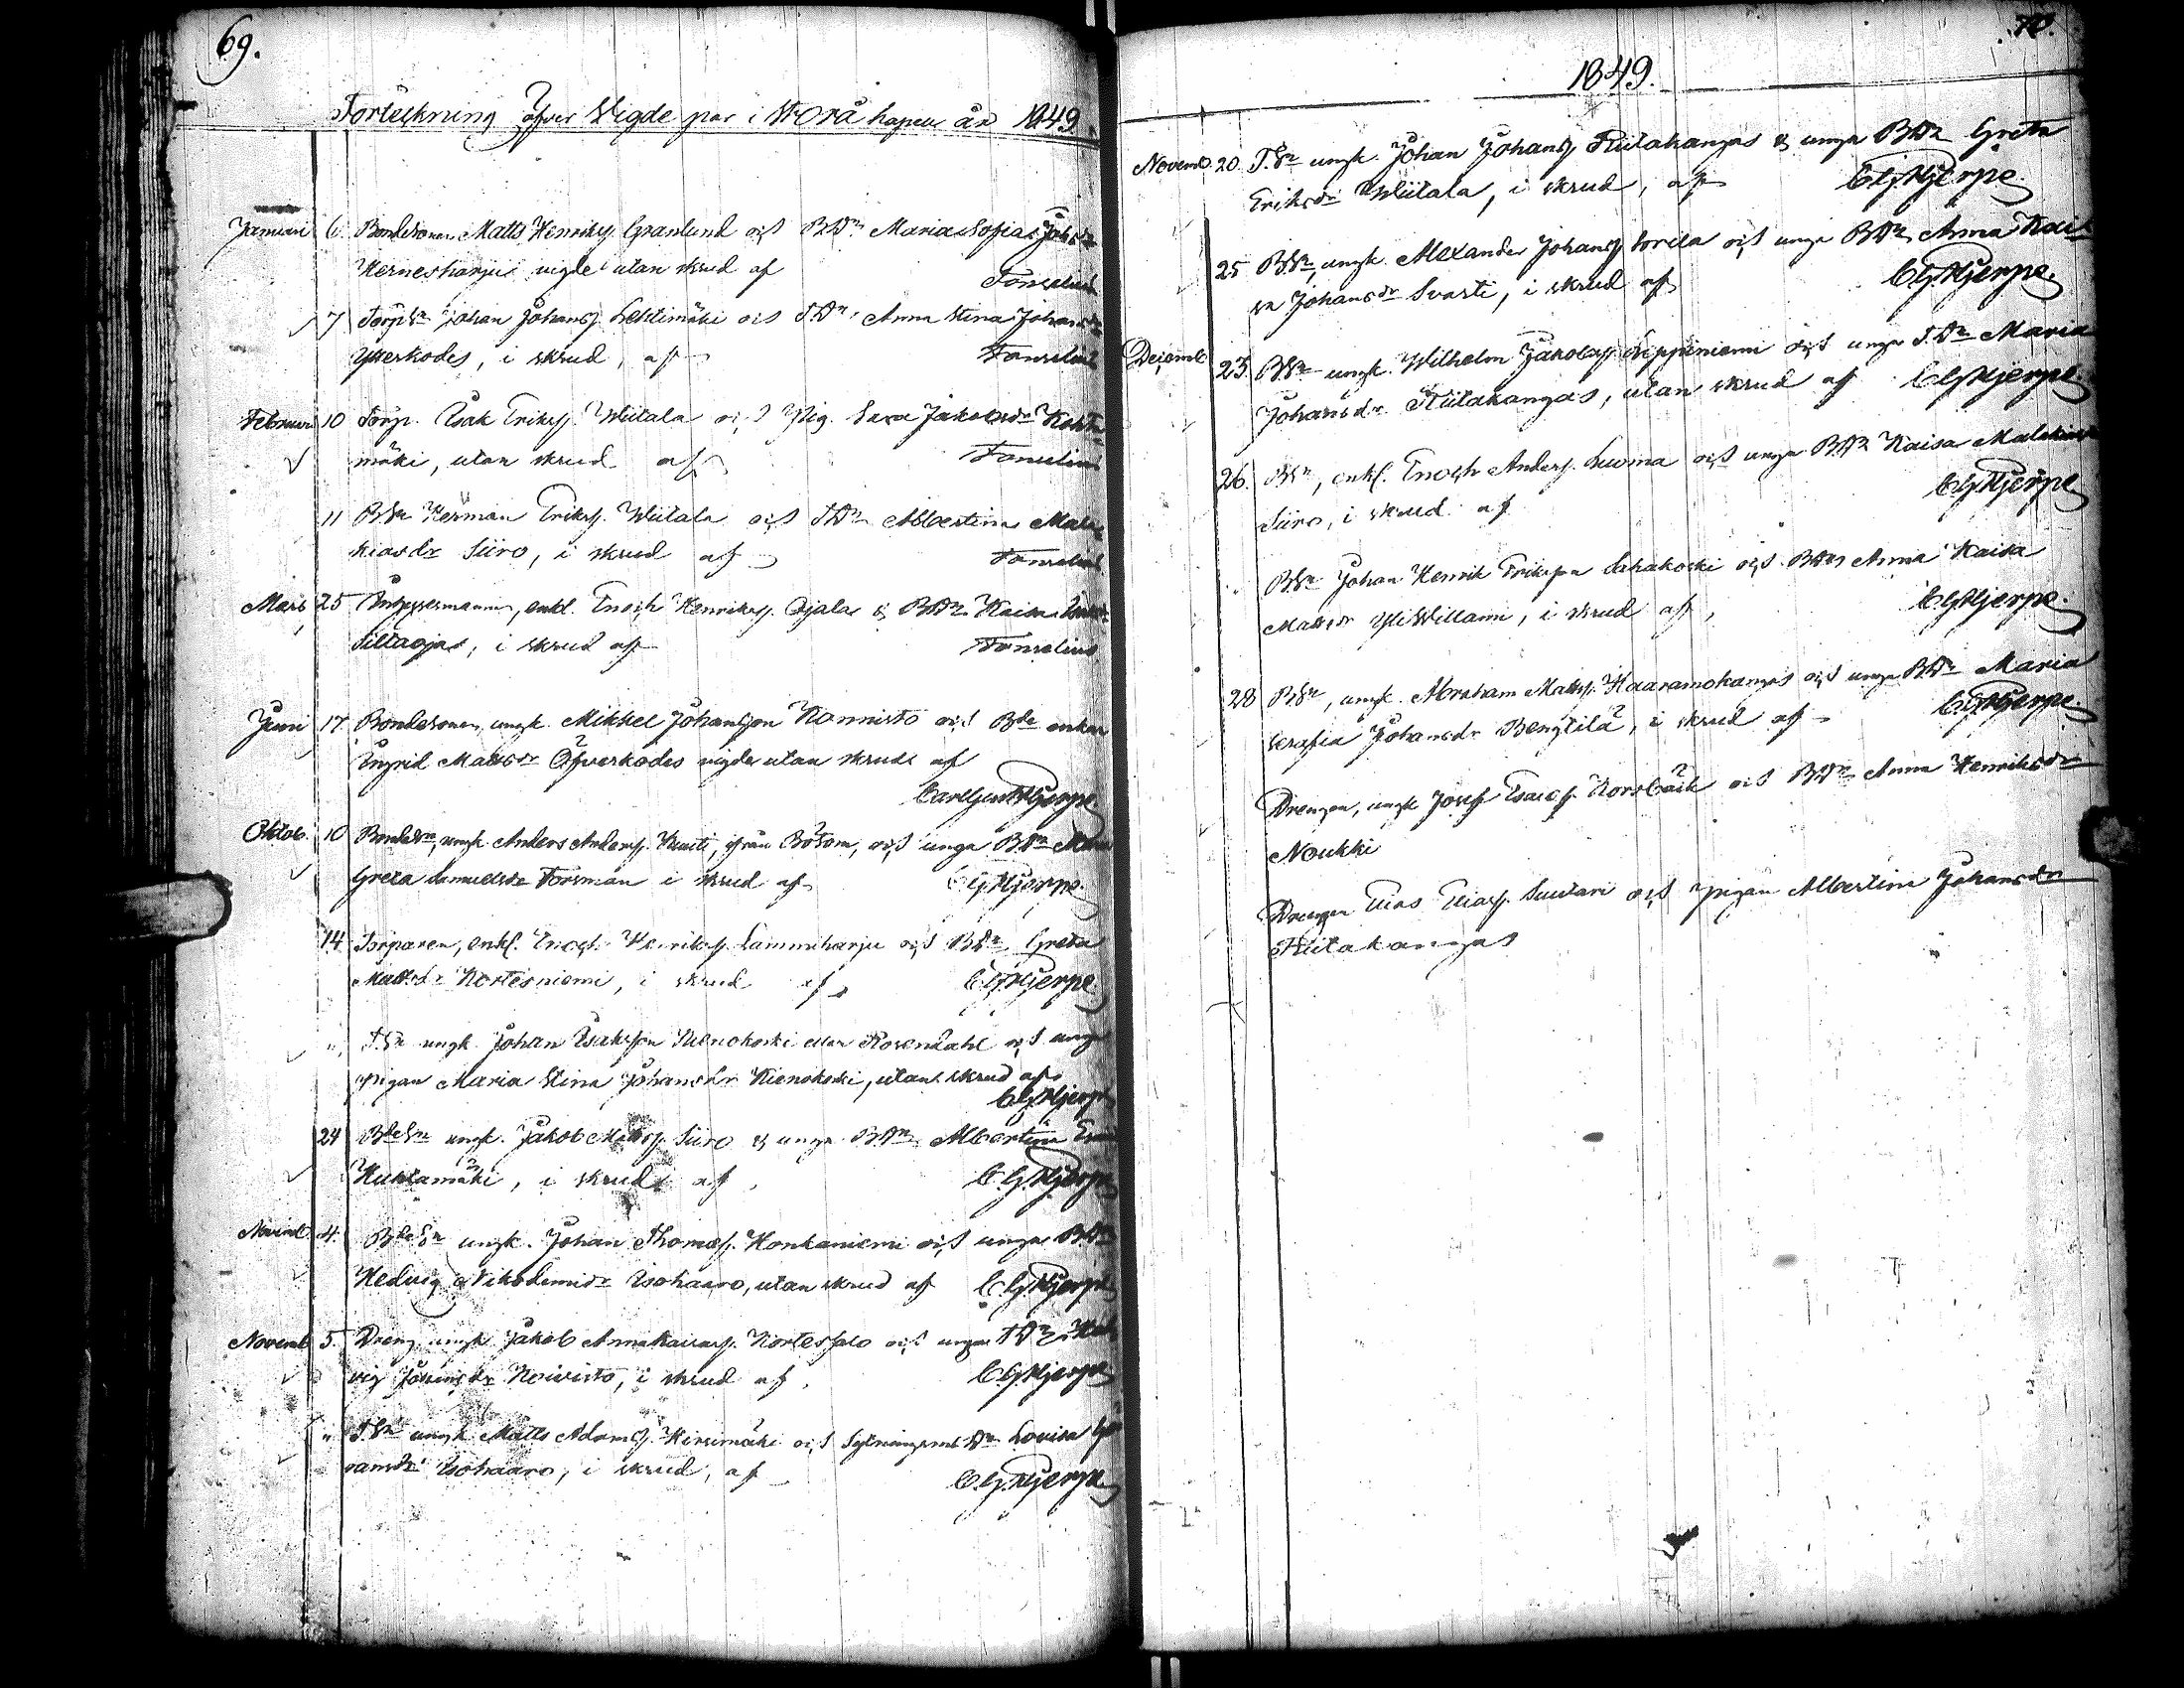 69.
Förteckning öfver Wigde par i Storå kapell år 1849.
Januari 6. Bondesonen Matts Henriks. Granlund och B.Dr. Maria Sofia Johsdr
Kerneskanjus vigde utan skrud af Fonselius
7 Torp.Sn Johan Johanss. Lehtimäki och T.Dr. Anna Stina Johansdr
Ytterkodes, i skrud, af Fonselius
Februari 10 Torp. Isak Eriks. Wiitala och Pig. Sara Jakobsdr Koht-
mäki, utan skrud af Fonselius
11 B.Sn Herman Eriks. Wiitala och T.Dr Albertina Mala-
kiasdr Siiro, i skrud af Fonselius
Mars 25 enkl. Enoch Henrikss. Ojala & B.Dr Kaisa
Siltaojas, i skrud af Fonselius
Juni 17 Bondesonen, ungk. Mikkel Johansson Kannisto och Bde enkan
Ingrid Mattsdr Öfverkodes vigde utan skrud af
Carl Gust Hjerpe
Oktob. 10 Bondesn, ungk. Anders Anderss. Knuuti, från Bötom, och unga B.Dr Maria
Greta Samuelsdr Forsman i skrud af CGHjerpe.
14 Torparen, enkl. Enoch Henrikss. Lammiharju och B.Dr Greta
Mattsdr Kortesniemi, i skrud af CGHjerpe
" T.Sn ungk. Johan Isaksson Kienokoski eller Rosendahl och unga
pigan Maria Stina Johansdr Kienokoski, utan skrud af
CGHjerpe
24 BdeSn ungk. Jakob Mattss. Siiro & unga B.Dr Albertina
Kuhlamäki, i skrud af C.G.Hjerpe
Novemb. 4. BdeSn ungk. Johan Thomass. Honkaniemi och unga B.Dr
Hedvig Nikodemidr Isohaaro, utan skrud af C.G.Hjerpe
Novemb 5. Dreng. ungk. Jakob Annakaisas. Kortessalo och unga T.Dr Hed-
vig Johansdr Koivisto, i skrud af C.G.Hjerpe
" T.Sn ungk. Matts Adams. Hirsimäki och Sytningsm Dr Lovisa Gö-
ransdr Isohaaro, i skrud, af C.G.Hjerpe
70.
1849.
Novemb. 20. T.Sn ungk. Johan Johanss. Riitakangas & unga B.Dr Greta
Eriksdr Wiitala, i skrud, af CGHjerpe.
25 B.Sn, ungk. Alexander Johanss. Sorila och unga B.Dr Anna Kai-
sa Johansdr Svarti, i skrud af CGHjerpe.
Decemb 23. B.Sn ungk. Wilhelm Jakobss. Leppiniemi och unga T.Dr Maria
Johansdr Riitakangas, utan skrud af CGHjerpe
26. B.Sn, enkl. Enoch Anderss. Luoma och unga B.Dr Kaisa Malakiasdr
Siiro, i skrud af CGHjerpe
" B.Sn Johan Henrik Eriksson Lahakoski och B.Dr Anna Kaisa
Mattsdr YliWillami, i skrud af, C.G.Hjerpe.
28 B.Sn, ungk. Abraham Mattss. Haaramokangas och unga B.Dr Maria
Serafia Johansdr Bengtilä, i skrud af C.G.Hjerpe.
Drengen, ungk Josef Esaias. Korsbäck och B.Dr Anna Henriksdr
Noukki
Drengen Elias Eliass. Suutari och pigan Albertina Johansdr
Riitakangas